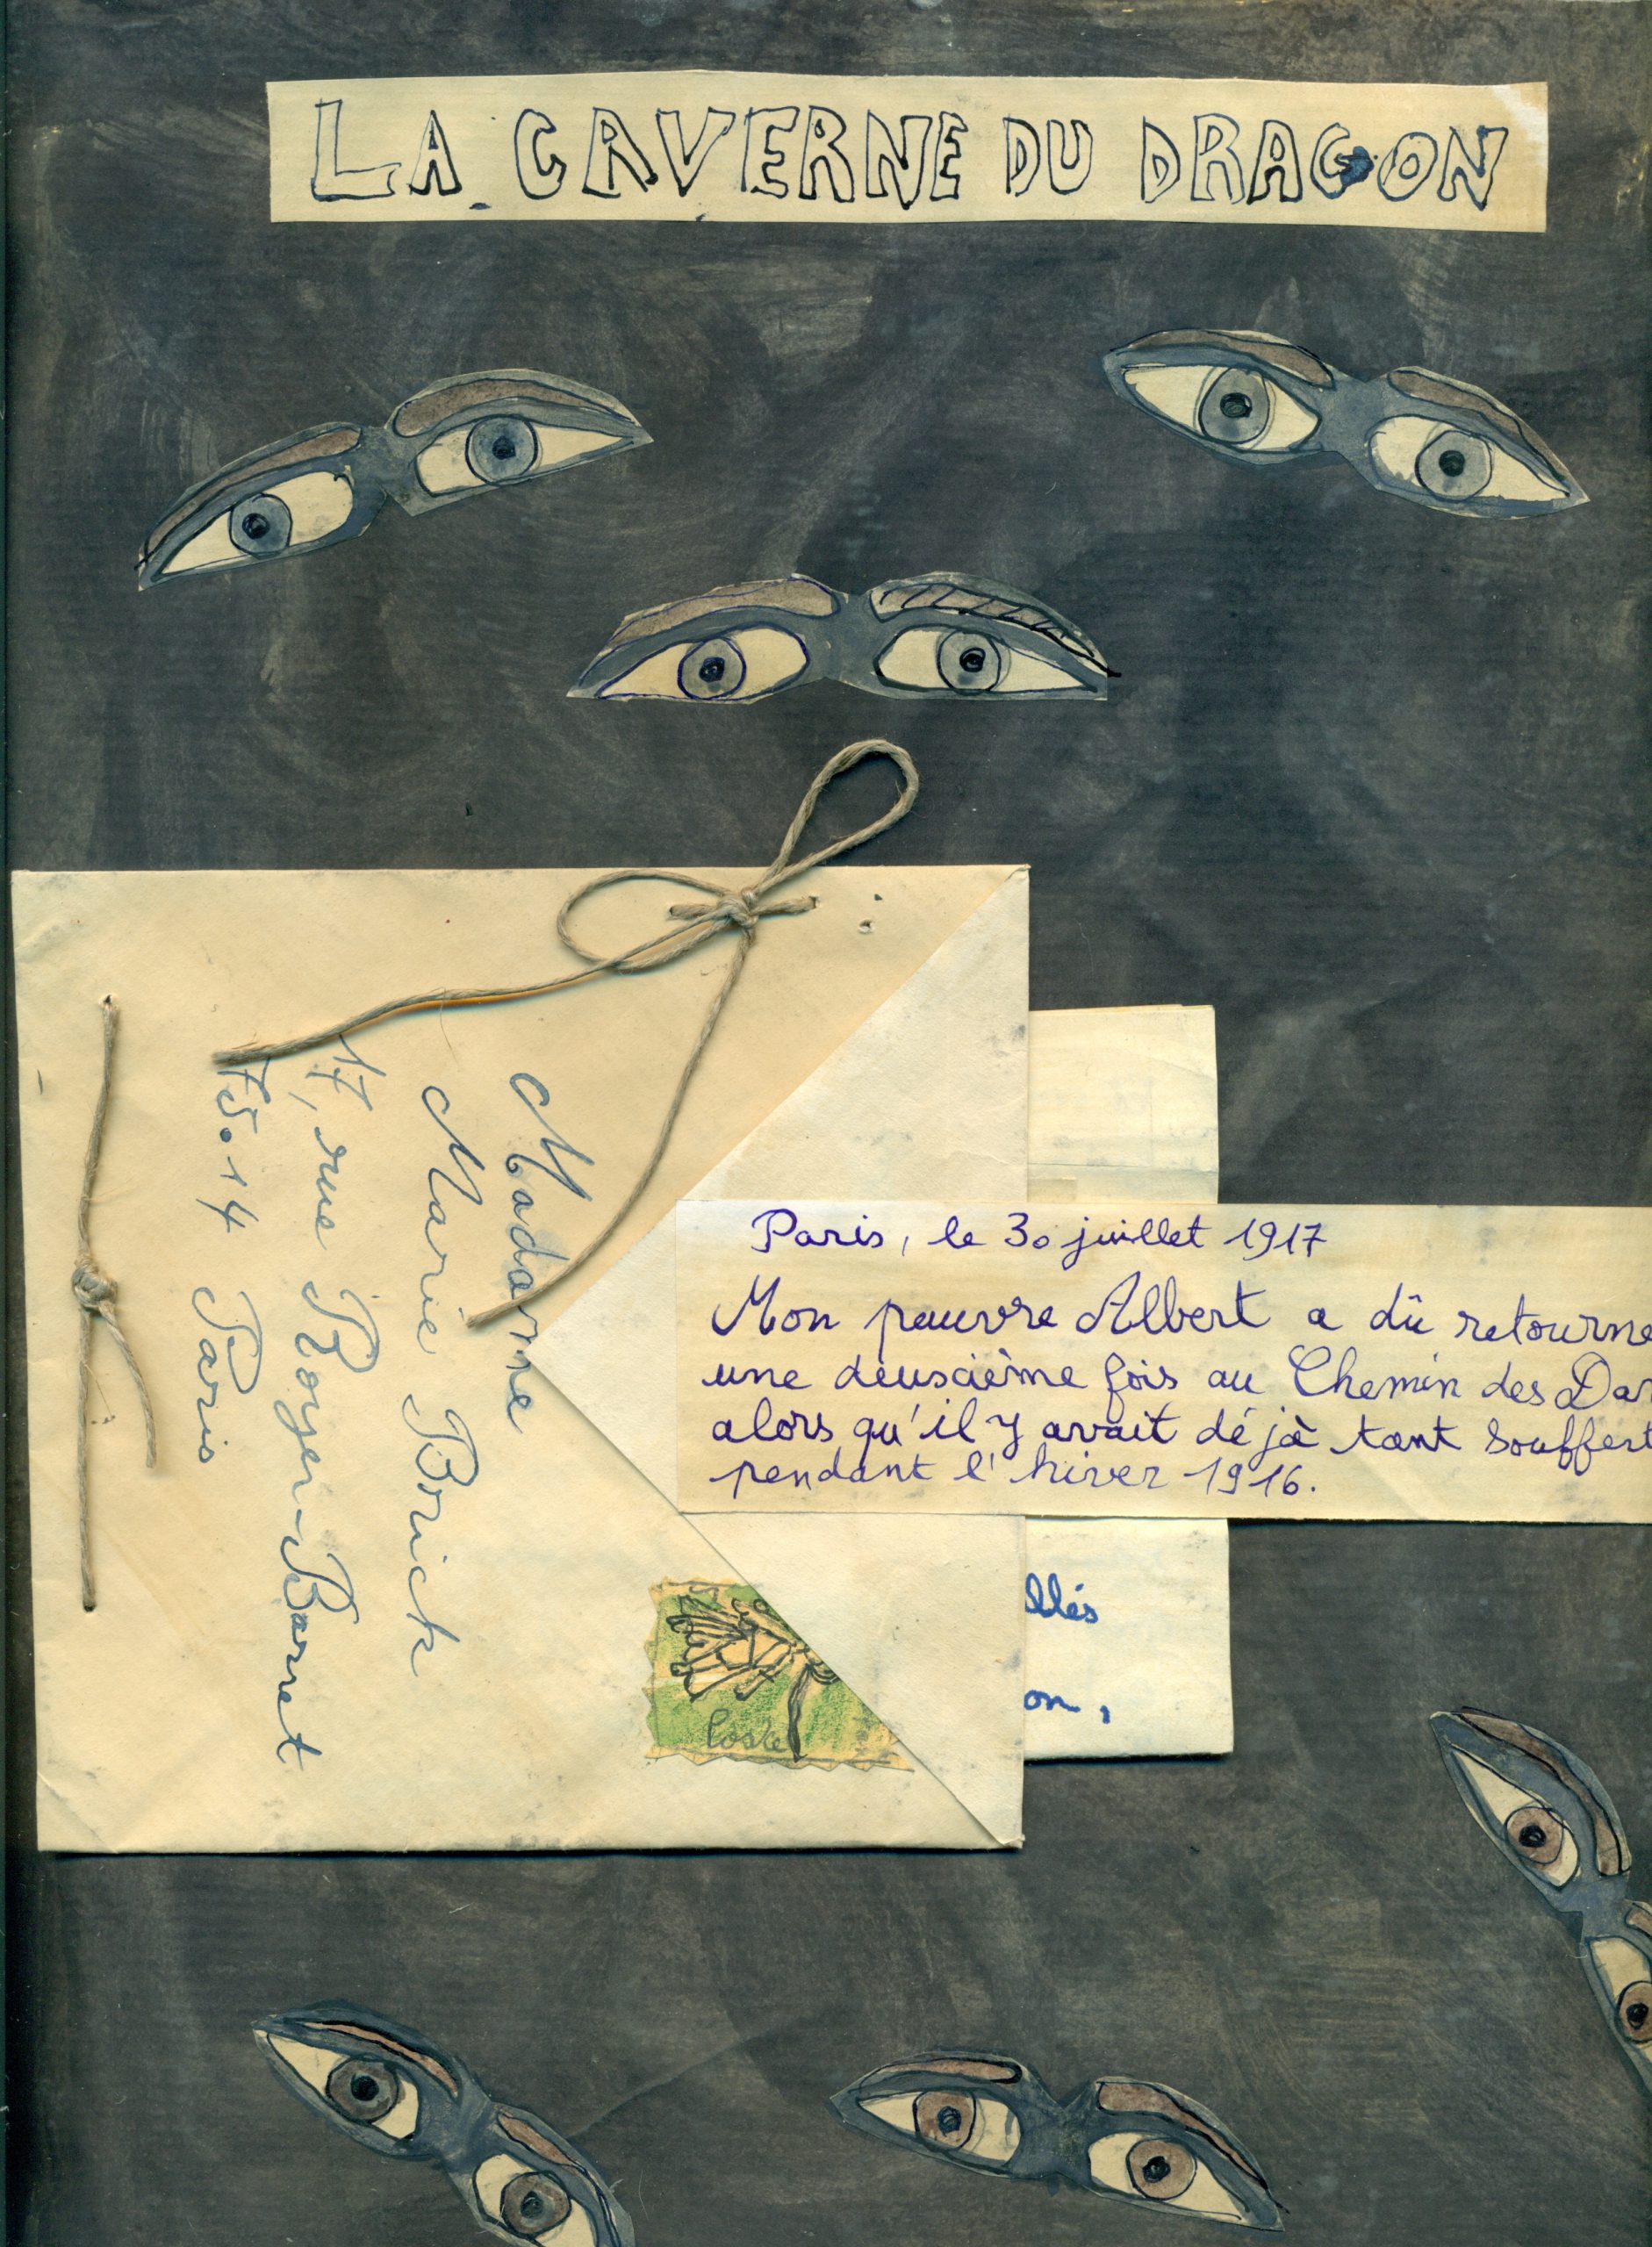 LA CAVERNE DU DRAGON
Madame
Marie Borick
17, rue Boyer-Barret
75.14 Paris
Paris, le 30 juillet 1917
Mon pauvre Albert a dû retourne
une deuxième fois au Chemin des Dam
alors qu'il y avait déjà tant souffert
pendant l'hiver 1916.
llés
on,
Poste